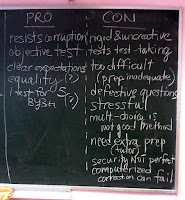 PRO
resists corruption
objective test
clear expectations
equality (?)
1 test for 5 (?)
CON
rigid & uncreative
tests test-taking
too difficult
(prep inadequate)
defective questions
stressful
mult.-choice is
not good method
need extra prep
(tutor)
security not perfect
computerized
correction can fail